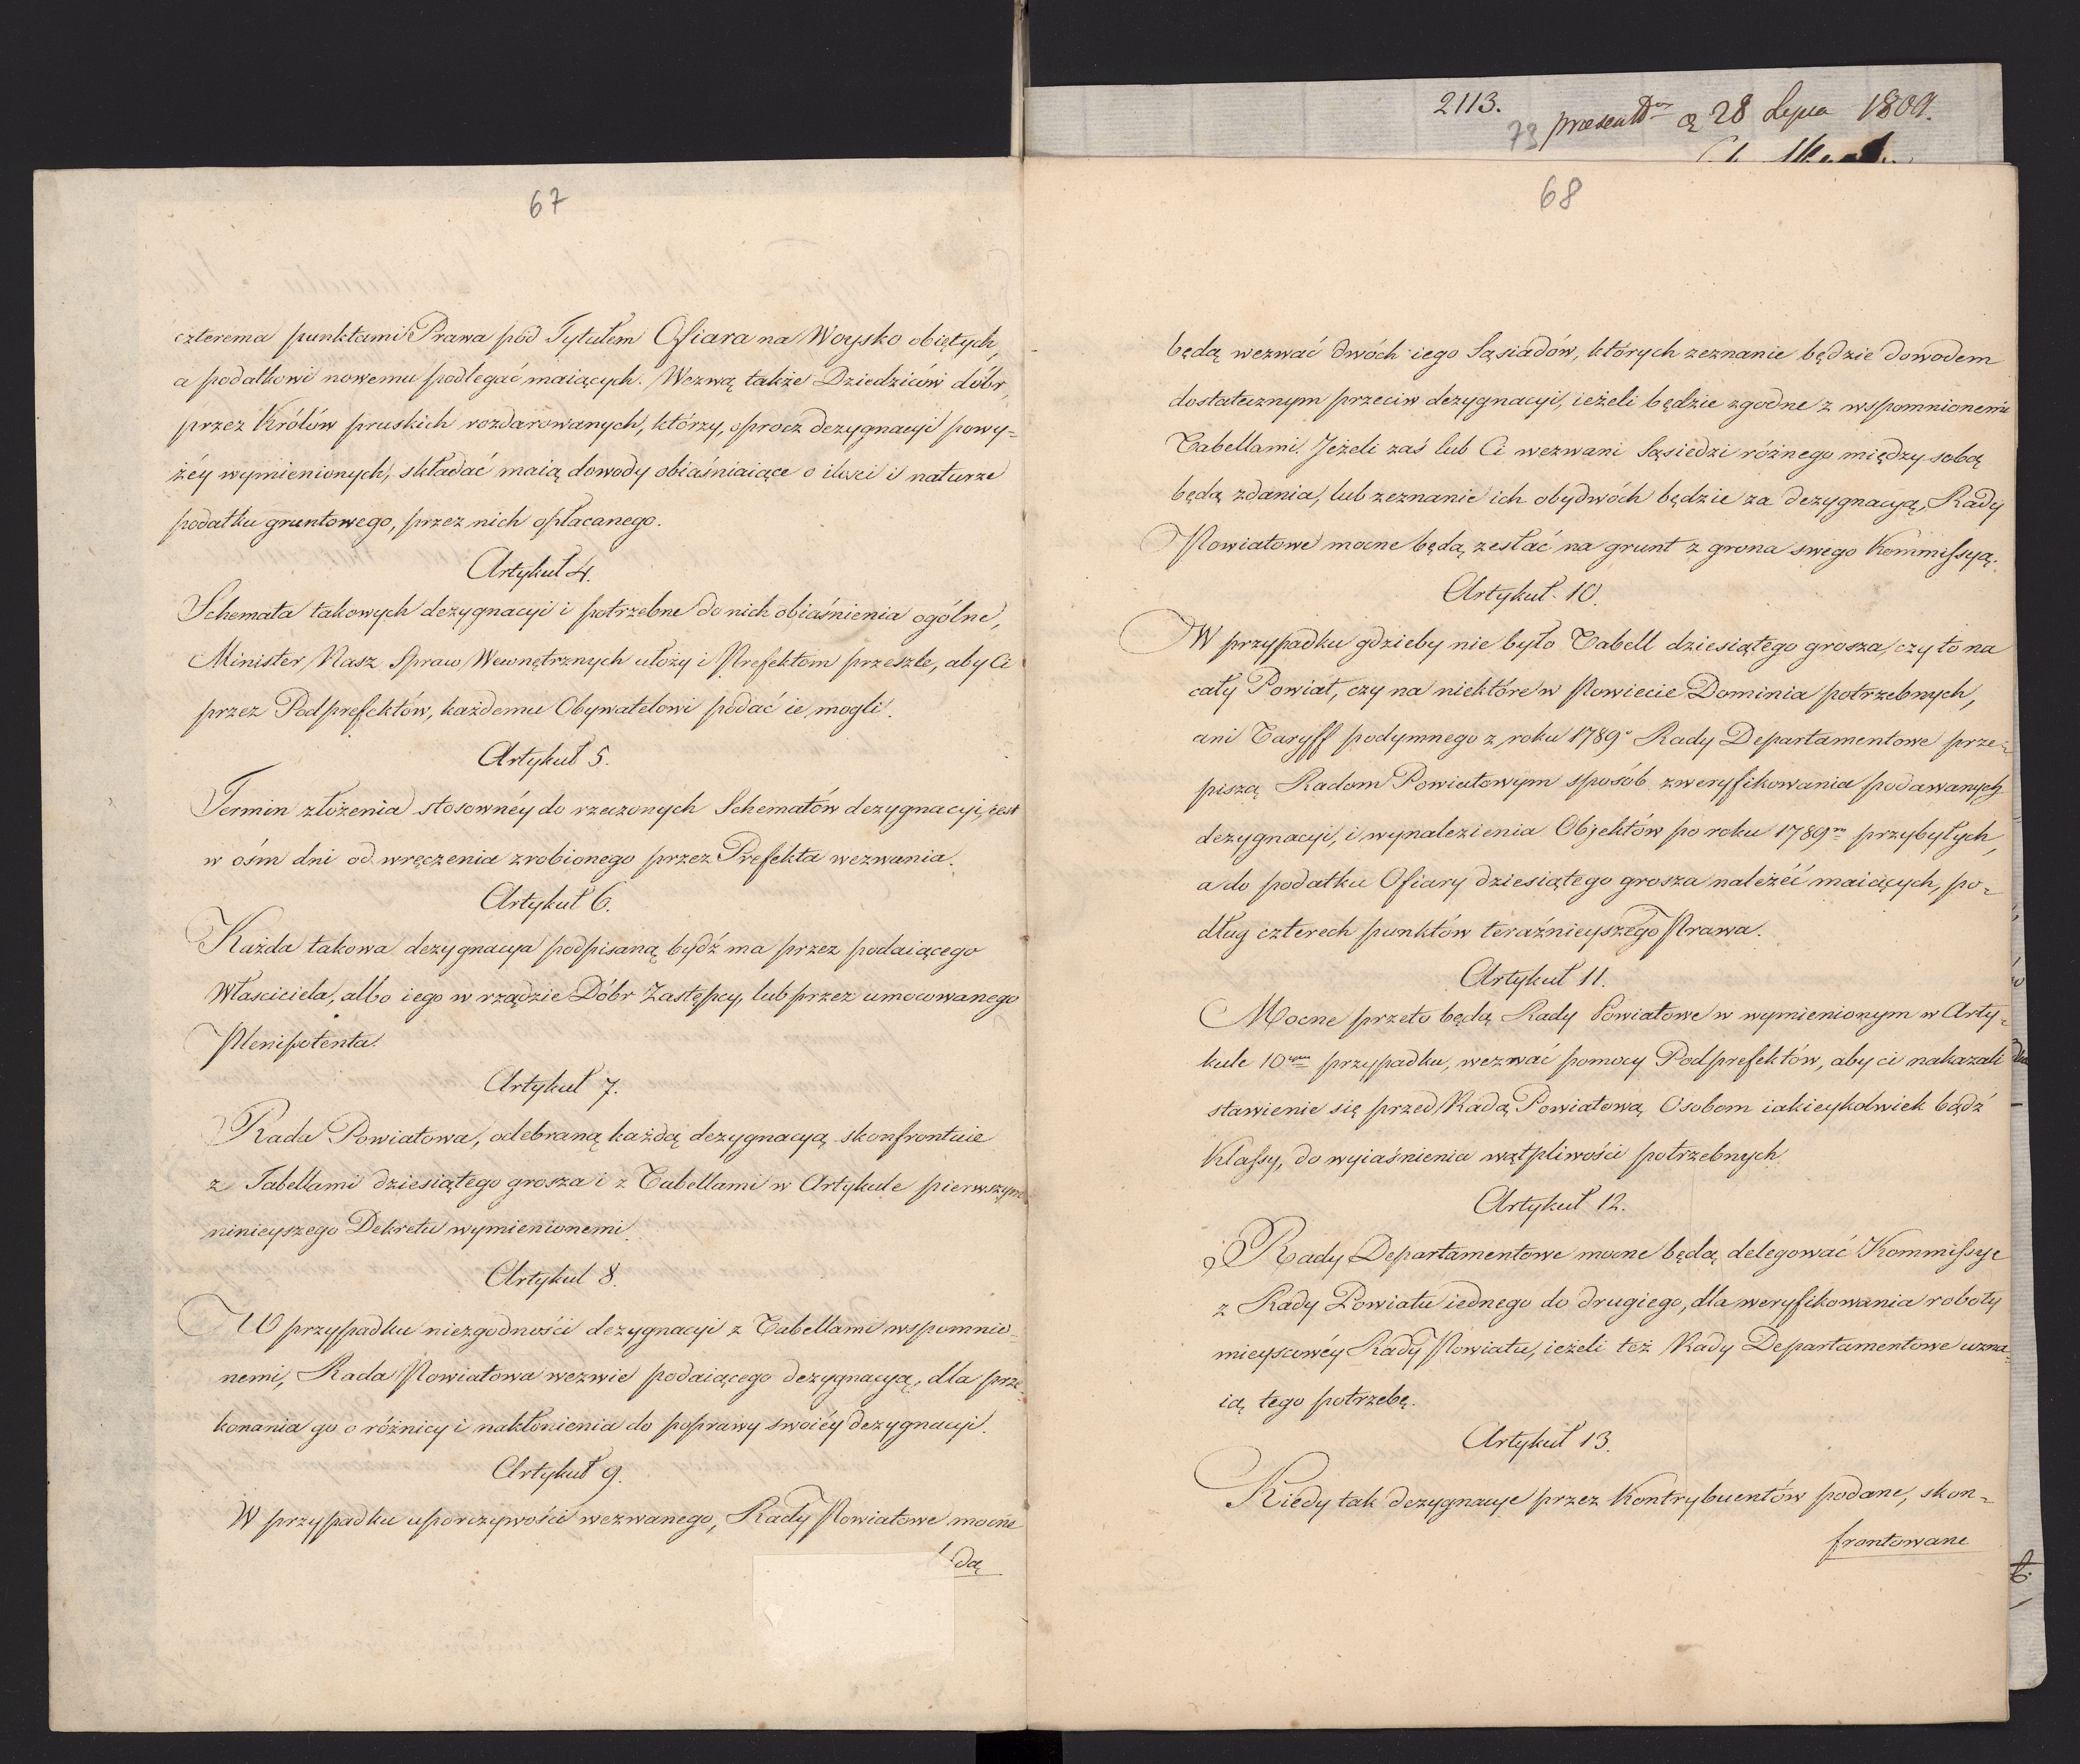 67
czterema punktami Prawa pod Tytułem Ofiara na Woysko obiętych,
a podatkowi nowemu podlegać maiących. Wezwą także Dziedziców dóbr,
przez Królów pruskich rozdarowanych, którzy, oprocz dezygnacyi powy=
żéy wymienionych, składać maią dowody obiaśniaiące o ilości i naturze
podatku gruntowego, przez nich opłacanego.
Artykuł 4.
Schemata takowych dezygnacyi i potrzebne do nich obiaśnienia ogólne,
Minister Nasz Spraw Wewnętrznych ułoży i Prefektom przeszle, aby Ci
przez Podprefektów, każdemu Obywatelowi podać ie mogli.
Artykuł 5.
Termin złożenia stosownéy do rzeczonych Schematów dezygnacyi, iest
w ośm dni od wręczenia zrobionego przez Prefekta wezwania.
Artykuł 6.
Każda takowa dezygnacya podpisaną bydź ma przez podaiącego
Własciciela, albo iego w rządzie Dóbr Zastępcy, lub przez umocowanego
Plenipotenta.
Artykuł 7.
Rada Powiatowa, odebraną każdą dezygnacyą skonfrontuie
z Tabellami dziesiątego grosza i z Tabellami w Artykule pierwszym
ninieyszego Dekretu wymienionemi.
Artykuł 8.
W przypadku niezgodności dezygnacyi z Tabellami wspomnio=
nemi, Rada Powiatowa wezwie podaiącego dezygnacyą, dla prze=
konania go o różnicy i nakłonienia do poprawy swoiéy dezygnacyi.
Artykuł 9.
W przypadku uporczywości wezwanego, Rady Powiatowe mocne
dą
2113.
73 presentt a 28 Lipca 1809.
68
będą wezwać dwóch iego Sąsiadów, których zeznanie będzie dowodem
dostatecznym przeciw dezygnacyi, ieżeli będzie zgodne z wspomnionemi
Tabellami. Jeżeli zaś lub Ci wezwani Sąsiedzi różnego między sobą
będą zdania, lub zeznanie ich obydwóch będzie za dezygnacyą, Rady
Powiatowe mocne będą zesłać na grunt z grona swego Kommissyą.
Artykuł 10.
W przypadku gdzieby nie było Tabell dziesiątego grosza, czy to na
cały Powiat, czy na niektóre w Powiecie Dominia potrzebnych,
ani Taryff podymnego z roku 1789º Rady Departamentowe prze=
piszą Radom Powiatowym sposób zweryfikowania podawanych
dezygnacyi, i wynalezienia Objektów po roku 1789m przybyłych,
a do podatku Ofiary dziesiątego grosza należéć maiących, po=
dług czterech punktów teraźnieyszego Prawa.
Artykuł 11.
Mocne przeto będą Rady Powiatowe w wymienionym w Arty=
kule 10tym przypadku, wezwać pomocy Podprefektów, aby ci nakazali
stawienie się przed Radą Powiatową Osobom iakieykolwiek bądź
Klassy, do wyiaśnienia wątpliwości potrzebnych.
Artykuł 12.
Rady Departamentowe mocne będą delegować Kommissye
z Rady Powiatu iednego do drugiego, dla weryfikowania roboty
mieyscowéy Rady Powiatu, ieżeli też Rady Departamentowe uzna=
ią tego potrzebę.
Artykuł 13.
Kiedy tak dezygnacye przez Kontrybuentów podane, skon=
frontowane